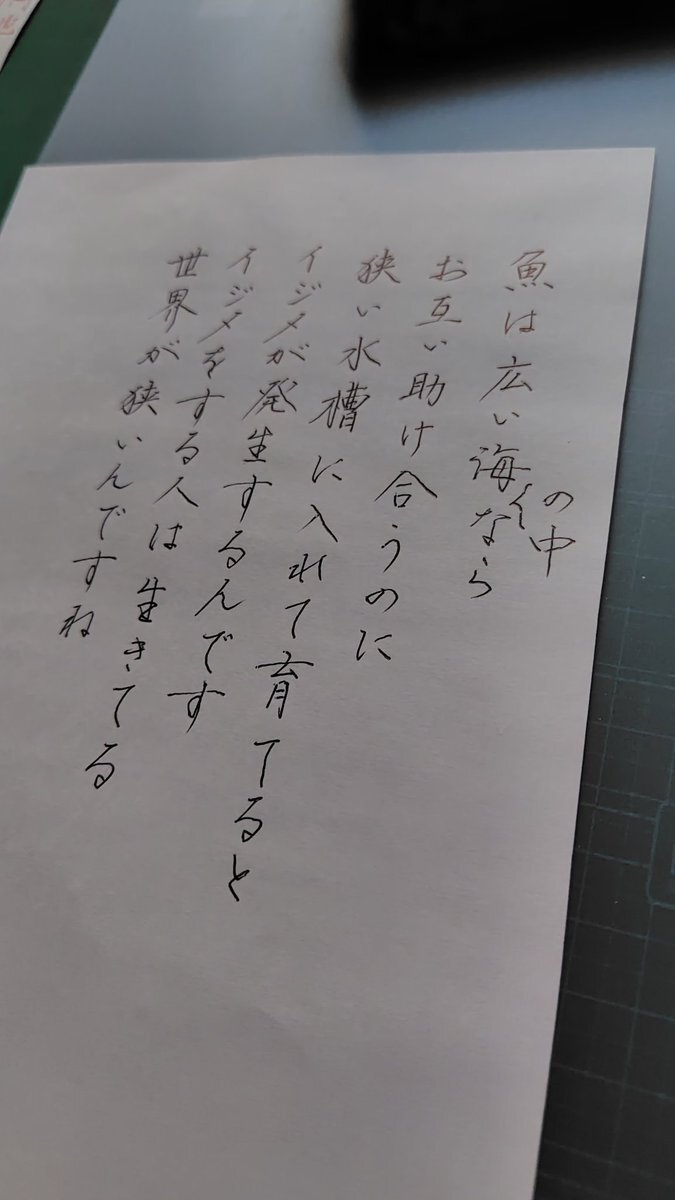 魚は広い海の中なら
お互い助け合うのに
狭い水槽に入れて育てると
イジメが発生するんです
イジメをする人は生きてる
世界が狭いんですね